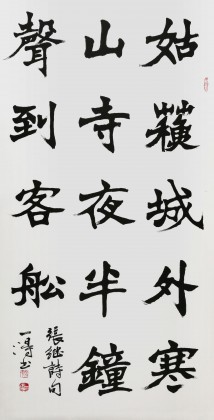 姑蘓城外寒
山寺夜半鐘
聲到客舩
張继詩句
一濤书